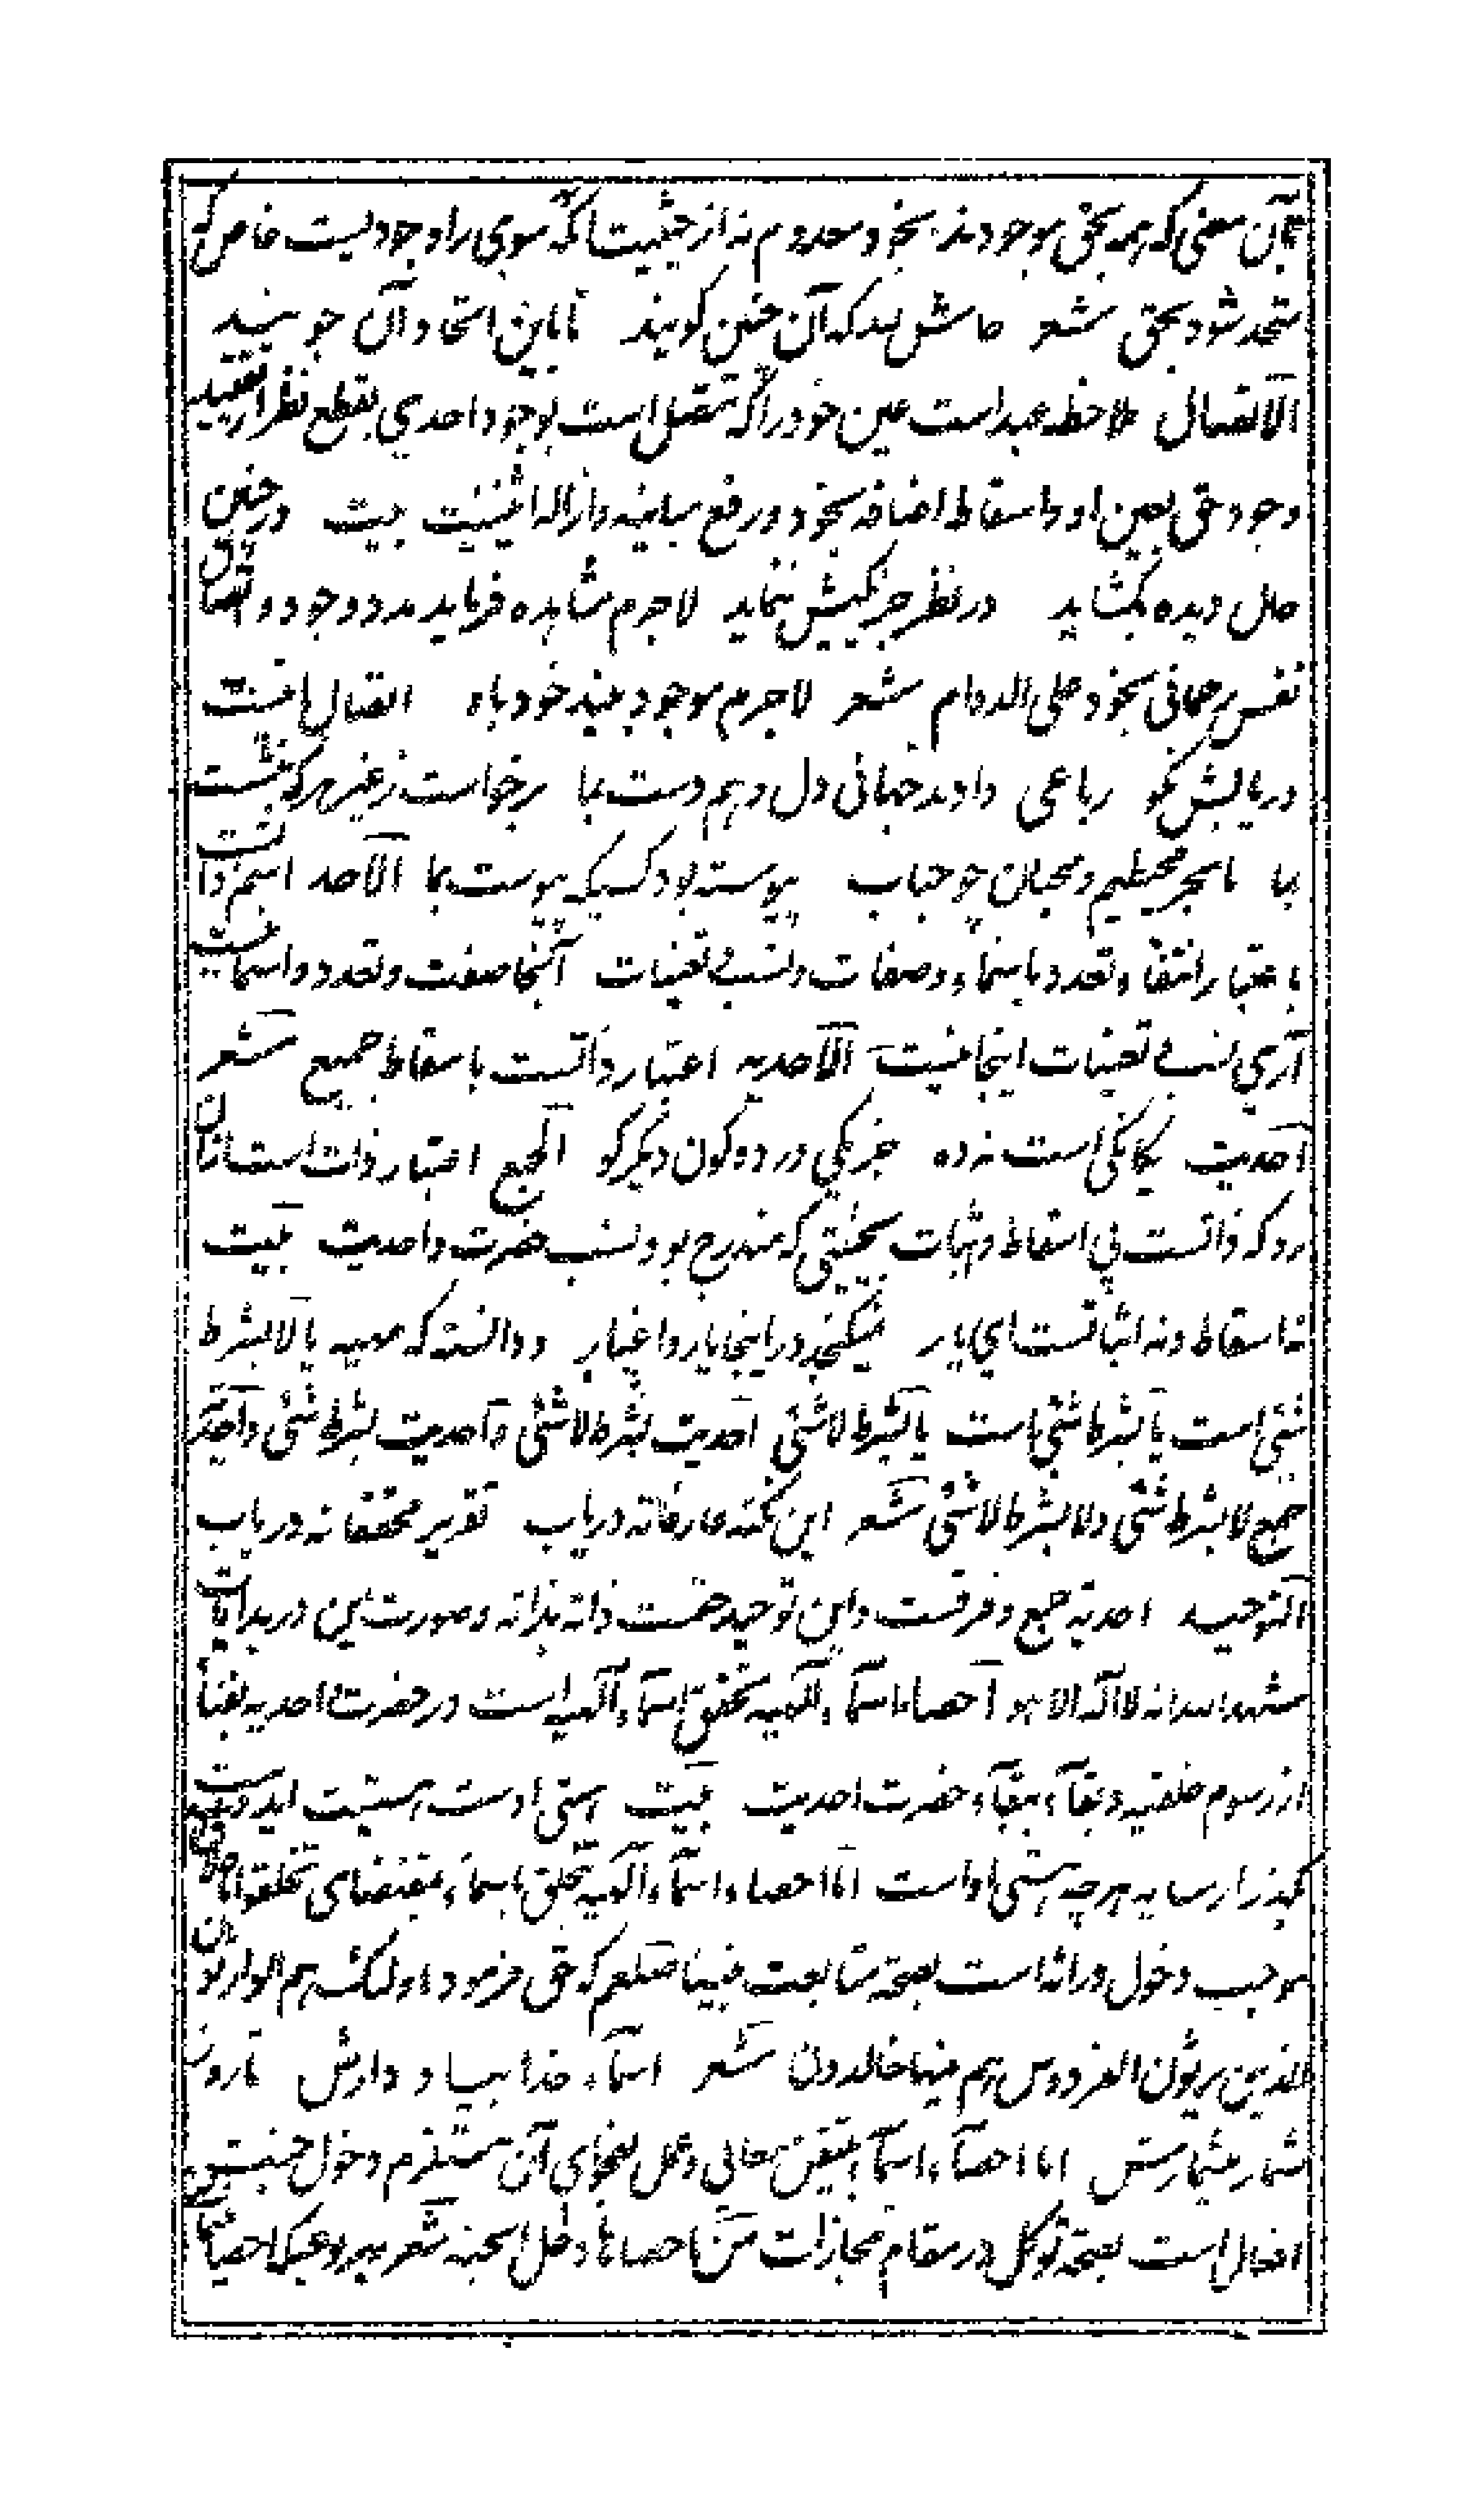 بآن معنی که همه بحق موجودند بخود معدوم نه از حیثیت آنکه سوی را وجودیست خاص که
متحد شود بحق شعر حاش لله که آن چنین گویند تا باین اتحاد آن جویند
الاتصال ملاحظه عبد است عین خود را که متصل است بوجود احدی بقطع نظر از تقیید
وجود حق بعین او و اسقاط اضافه بخود و رفع مباینه و ازاله اثنینیت بیت در چنین
حال دیده بگشاید در نظر جز یکیش ننماید لاجرم مشاهده فرماید مدد وجود و اتصال
نفس رحمانی بخود علی الدوام شعر لاجرم موجود بیند خود باو اتصال اینست
دریابش نکو رباعی دادند جهانی دل و هم دست بما برخاست ز غیر هرکه بنشست
بما ما بحر محیطیم و محبان چو حباب پیوسته بود کسیکه پیوست بما الاحد اسم ذات
باعتبار انتفاء تعدد باسماء و صفات و نسب و تعینات آنجا صفت و تعدد و اسمانیست
آری نسب و تعینات اینجا نیست الاحدیه اعتبار ذاتست باسقاط جمیع شعر
احدیت یگانگی است نه ده جز یکی در دو کون دیگر گو الجمع اعتبار ذات است ازان
رو که ذاتست بی اسقاط و اثبات بحیثیتی که مندرج بود نسب حضرت واحدیت بیت
نه اسقاط و نه اثباتست ای یار نمیگنجد در اینجا یار و اغیار و دانسته که مهیه یا لا بشرط
شئی است یا بشرط شئی است یا بشرط لا شئی احدیت بشرط لا شئی واحدیت بشرط شئی واحدیت
جمع لا بشرط شئی ولا بشرط لا شئی شعر این نکته عارفانه دریاب تقریر محققانه دریاب
التوحید احدیة جمع و فرقست و این توحید حقست ذاته بذاته و صورت این در بدایات
شهد الله انه لا اله الا هو احصاء اسماء الهیه تحقق اسماء الهیه است در حضرت احدیه بفنا
از رسوم خلقیه و بقاء ببقاء حضرت احدیت بیت هستی اوست هستیت ای دوست
بگذر از سایه هرچه هستی اوست اما احصاء اسماء الهیه تخلق باسماء بمقتضای تخلقوا باخلاق
موجب دخول وراثه است بصحة متابعت نبینا صلعم که حق فرمود اولئک هم الوارثون
الذین یرثون الفردوس هم فیها خالدون شعر اسماء خدا بیاد دارش تا روز
شمار میشمارش اما احصاء اسماء بتیقن معانی و عمل بفحوای آن مستلزم دخول جنت
افعال است بصحة توکل در مقام مجازات من احصاها دخل الجنه شعر